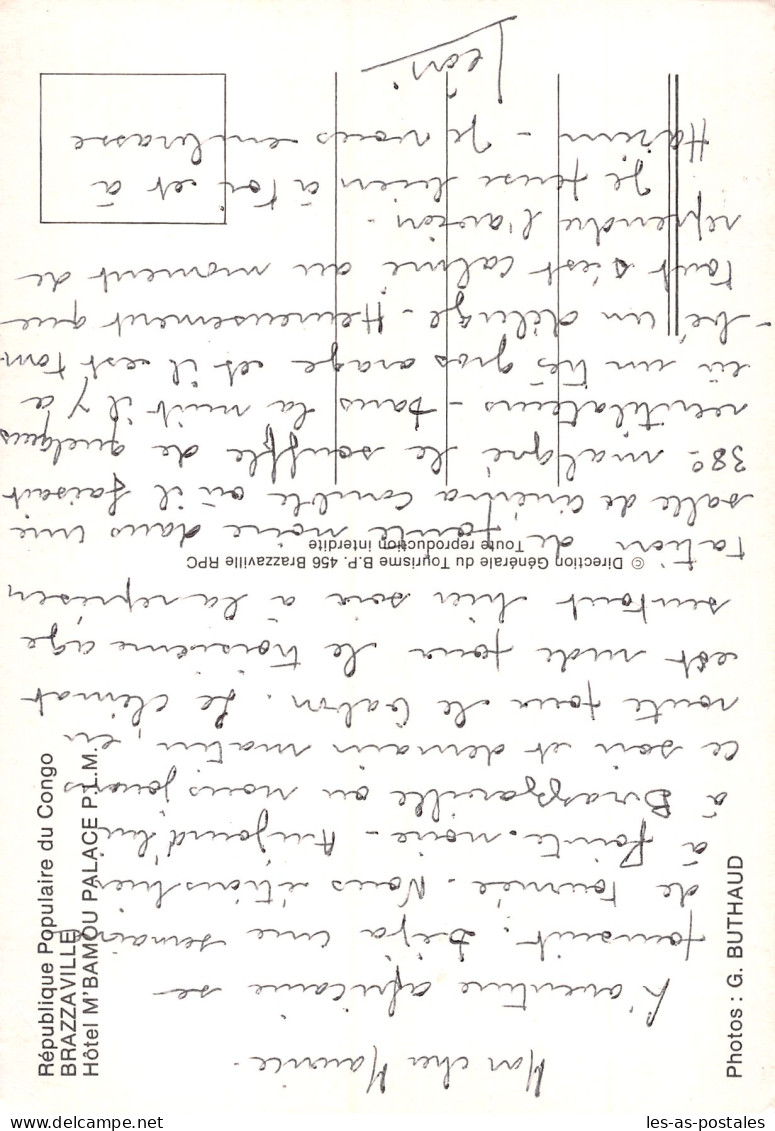 Mon cher Maurice.
L'aventure africaine se
poursuit. Déjà une semaine
de tournée. Nous étions hier
à Pointe-noire - Aujourd'hui
à Brazzaville où nous jouons
ce soir et demain matin, en
route pour le Gabon. Le climat
est rude pour le troisième age
surtout hier soir à la représen
tation de pointe noire dans une
salle de cinéma comble où il faisait
38° malgré le souffle de quelques
ventilateurs - dans la nuit il y a
eu un très gros orage et il est tom-
-bé un déluge - Heureusement que
tout s'est calmé au moment de
reprendre l'avion.
Je pense bien à toi et à
- Je vous embrasse
République Populaire du Congo
BRAZZAVILLE
Hôtel M'BAMOU PALACE P.L.M.
© Direction Générale du Tourisme B.P. 456 Brazzaville RPC
Toute reproduction interdite
Photos : G. BUTHAUD
les-as-postales